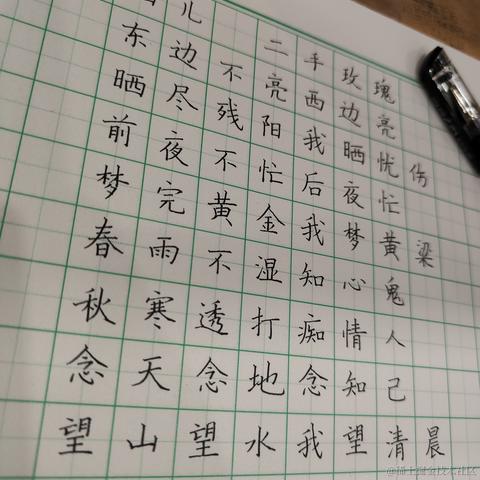 儿 二手玫瑰
东边不亮西边亮
晒尽残阳我晒忧伤
前夜不忙后夜忙
梦完黄金我梦黄粱
春雨不湿知心鬼
秋寒透打痴情人
念天念地念知己
望山望水我望清晨
@稀土掘金技术社区